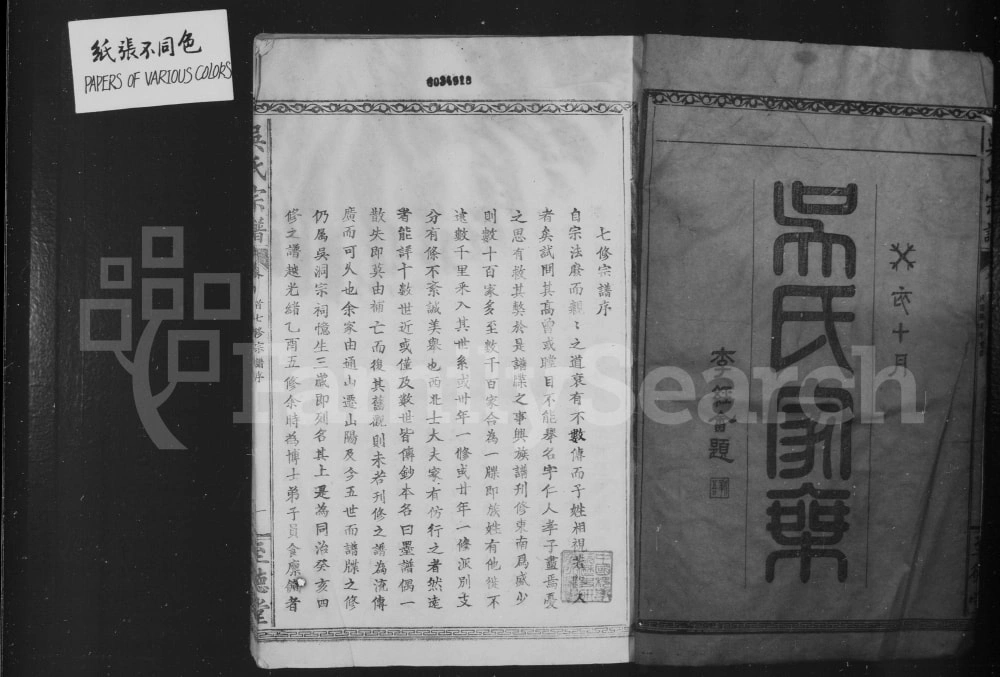 紙張不同色
PAPERS OF VARIOUS COLORS
6034918
吳氏家乘
十月
題
七修宗譜序
自宗法廢而親々之道衰有不數傳而子姓相視若
者矣試問其高曾或瞠目不能舉名字仁人孝子盡焉憂
之思有救其獘於是譜牒之事興族譜刊修東南爲盛少
則數十百家多至數千百家合為一牒即族姓有他徙不
遠數千里采入其世系或卅年一修或廿年一修派別支
分有條不紊誠美舉也西北士大夫家有仿行之者然遠
者能詳十數世近或僅及數世皆傳鈔本名曰墨譜偶一
散失即莫由補亡而復其舊觀則未若刊修之譜為流傳
廣而可久也余家由通山遷山陽及今五世而譜牒之修
仍属吳洞宗祠憶生三歲即列名其上是為同治癸亥四
修之譜越光緒乙酉五修余時為博士弟子員食廩餼者
吳氏宗譜
首七修宗譜序
一
至德堂
FamilySearch